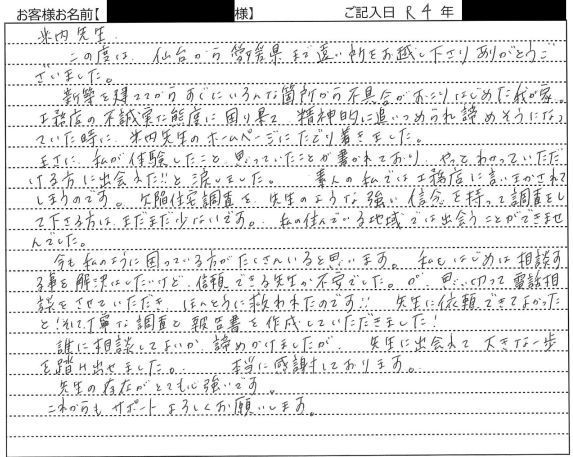 お客様お名前【 様】 ご記入日 R4年
米内先生
この度は、仙台から愛媛県まで遠い所をお越し下さりありがとうご
ざいました。
新築を建ててからすぐにいろんな箇所から不具合がおこりはじめた我が家。
工務店の不誠実な態度に困り果て、精神的に追いつめられ諦めそうになっ
ていた時に、米内先生のホームページにたどり着きました。
まさに、私が体験したこと、思っていたことが書かれており、やっとわかっていただ
ける方に出会えた!!と涙しました。 素人の私では工務店に言いまかされて
しまうのです。欠陥住宅調査を先生のような強い信念を持って調査をし
て下さる方は、まだまだ少ないです。私の住んでいる地域では出会うことができませ
んでした。
今も私のように困っている方がたくさんいると思います。私もはじめは相談す
る事を解決はしたいけど、信頼できる先生か不安でした。が、思い切って電話相
談をさせていただき、ほんとうに救われたのです!! 先生に依頼できてよかった
と!そして丁寧な調査と報告書を作成していただきました!
誰に相談してよいか、諦めかけましたが、先生に出会えて大きな一歩
を踏み出せました。 本当に感謝しております。
先生の存在がとても心強いです。
これからもサポートよろしくお願いします。